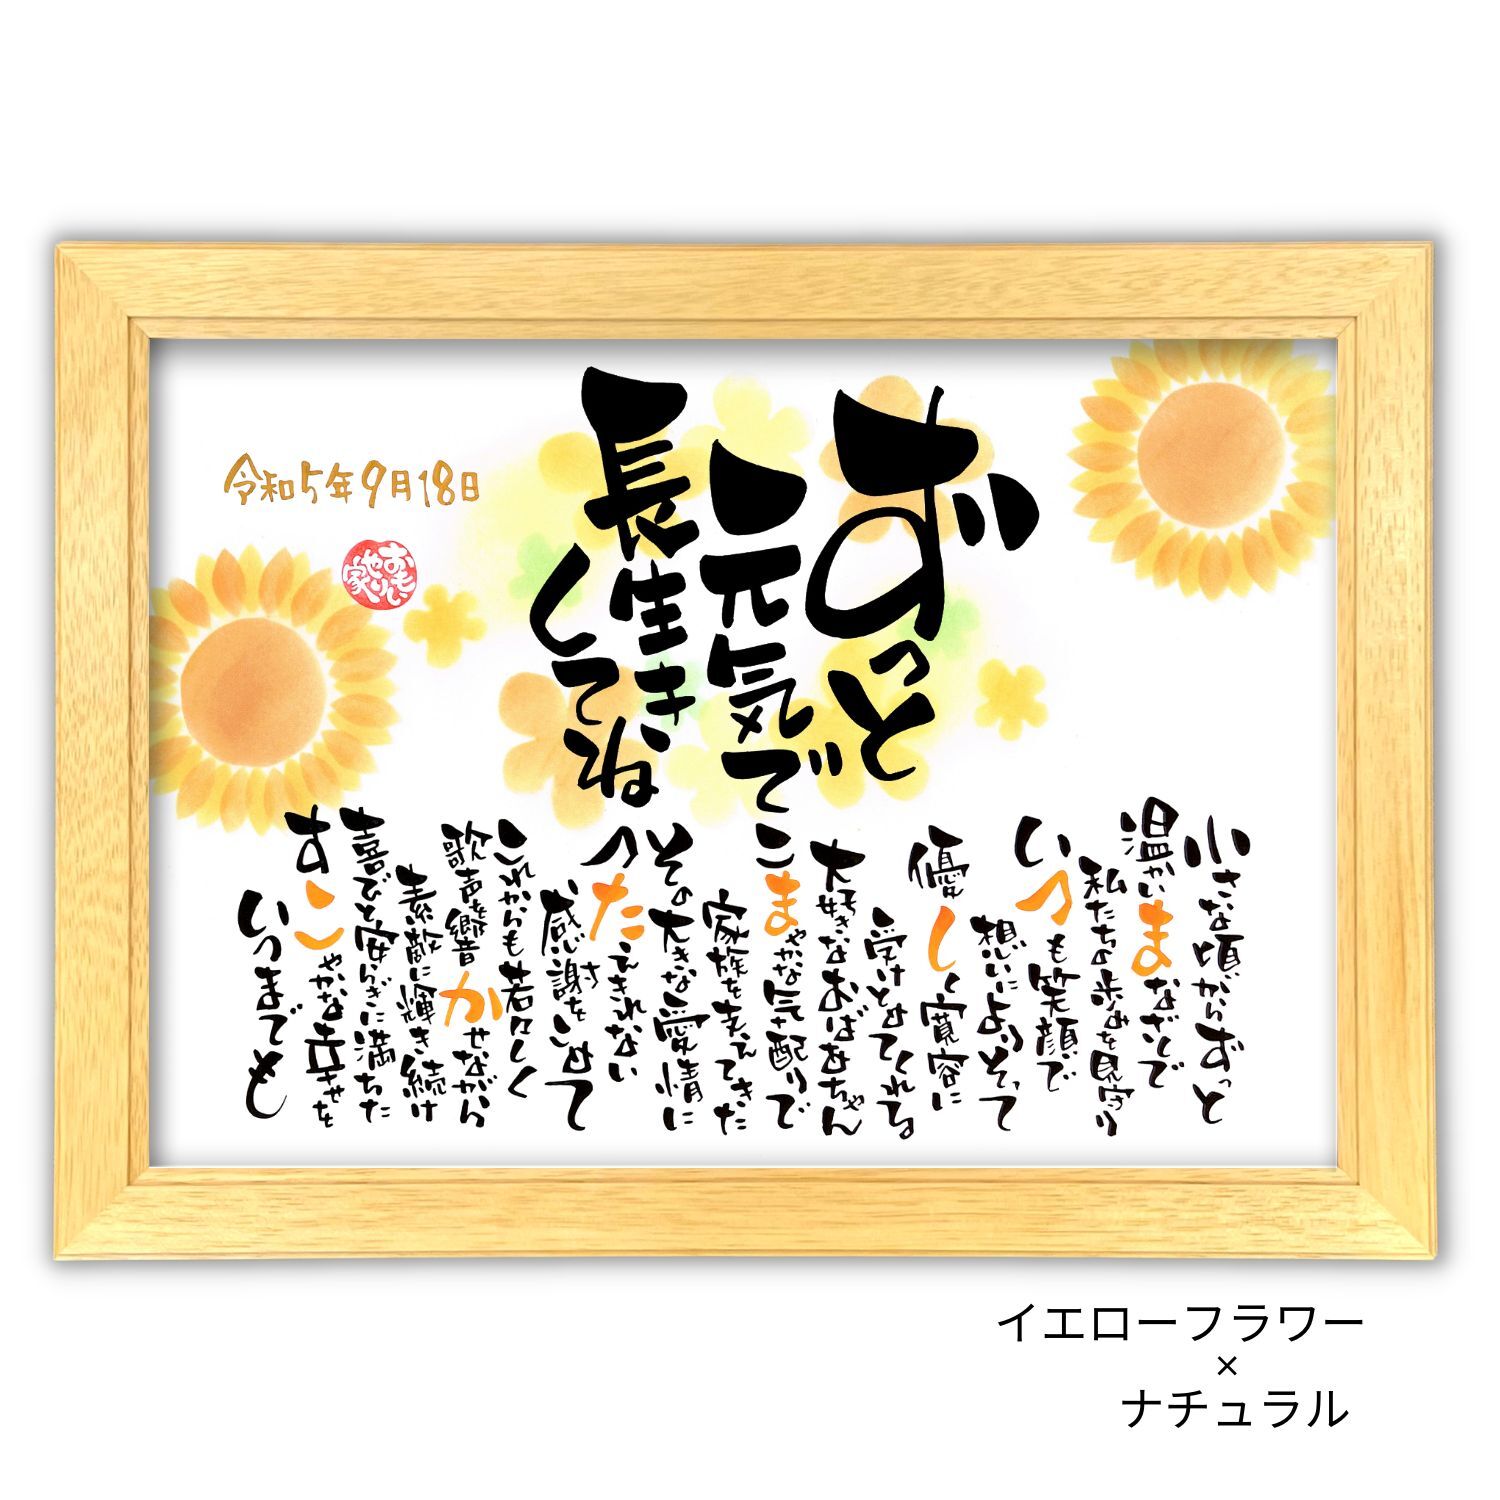 ずっと
元気で
長生き
してね
令和5年9月18日
おもいやり家
小さな頃からずっと
温かいまなざしで
私たちの歩みを見守り
いつも笑顔で
想いによりそって
優しく寛容に
受けとめてくれる
大好きなおばあちゃん
こまやかな気配りで
家族を支えてきた
その大きな愛情に
つたえきれない
感謝をこめて
これからも若々しく
歌声を響かせながら
素敵に輝き続け
喜びと安らぎに満ちた
すこやかな幸せを
いつまでも
イエローフラワー
×
ナチュラル